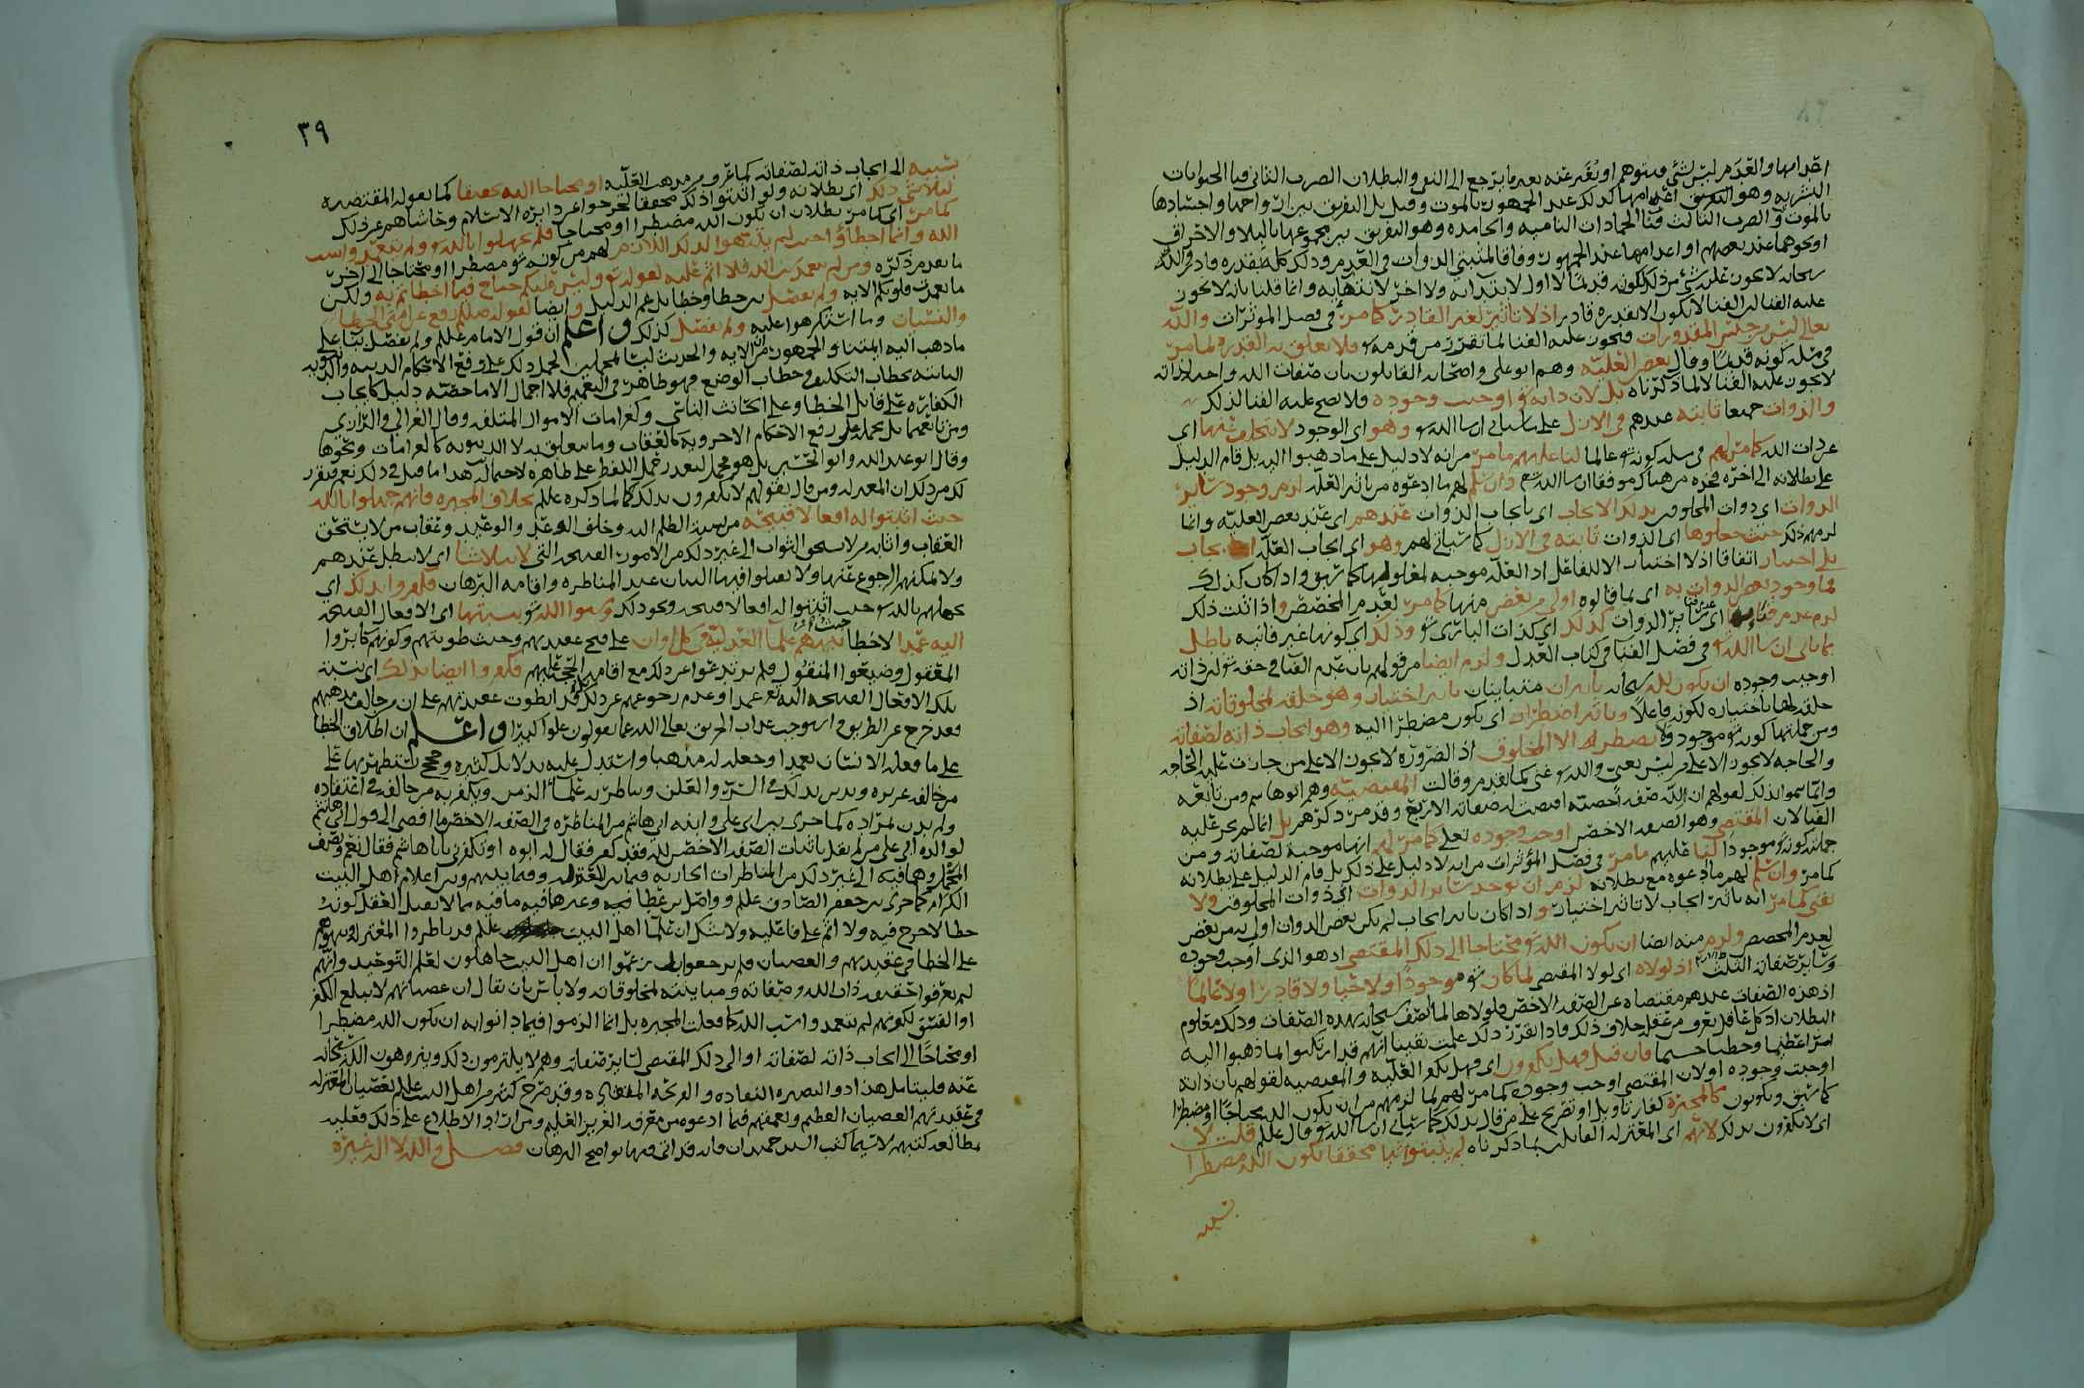 اعدامها والعدم ليس لشئ فيتوهم او يخبر عنه بعد فا يرجع الى النفي والبطلان الضرب الثاني فنا الحيوانات
البشريه وهو التفريق اعدامها كذلك عند الجمهور بالموت وقيل بل التفريق بين ارواحها واجسادها
بالموت والضرب الثالث فنا الجمادات الناميه والجامده وهو التفريق بين مجموعها بالبلا والاحراق
او نحوهما عند بعضهم او اعدامها عند الجمهور وفاقا لمثبتي الذوات في القدم وذلك كله مقدره قادر والله
سبحانه لا يجوز عليه شئ من ذلك لكونه قديما لا اول لابتدايه ولا آخر لانتهايه وانما قلنا بانه لا يجوز
عليه الفنا لان الفنا لا يكون الا بقدرة قادر اذ لا تاثير لغير القادر كما مر في فصل المؤثرات والله
تعالى ليس من جنس المقدورات فيجوز عليه الفنا لما تقرر من قدمه فلا تعلق به القدرة لما مر
في مسله كونه قديما وقال بعض العليه وهم ابو علي واصحابه القايلون بان صفات الله واحبه لذاته
لا يجوز عليه الفنا لا لما ذكرناه بل لان ذاته اوجبت وجوده فلا يصح عليه الفنا لذلك
والذوات جميعا ثابته عندهم في الازل على ما سياتي ان شا الله وهو اي الوجود لا يتخلف عنها اي
عن ذات الله كما مر لهم في مسله كونه عالما لنا عليهم ما مر من انه لا دليل على ما ذهبوا اليه بل قام الدليل
على بطلانه الى اخره فخذه من هناك موفقا ان شا الله وان سلم لهم ما ادعوه من تاثير العلة لزم وجود ساير
الذوات اي ذوات المخلوقين بذلك الايجاب اي بايجاب الذوات عندهم اي عند بعض العليه وانما
لزمهم ذلك حيث جعلوها اي الذوات ثابته في الازل كما سياتي لهم وهو اي ايجاب العلة ايجاب
بلا اختيار اتفاقا اذ لا اختيار الا للفاعل اذ العلة موجبه لمعلولها كما سبق واذا كان كذلك
فما وجود بعض الذوات به اي بما قالوه اولى من بعض منها كما مر لعدم المخصص واذا ثبت ذلك
لزم عدم فنا ساير الذوات كذلك اي كذات الباري وذلك اي كونها غير فانيه باطل
بما ياتي ان شا الله في فصل الفنا في كتاب العدل ولزم ايضا من قولهم بان عدم الفنا في حقه لان ذاته
اوجبت وجوده ان يكون لله سبحانه تاثيران متباينان تاثير اختيار وهو خلقه لمخلوقاته اذ
خلقه لها باختياره لكونه فاعلا وتاثير اضطرار اي يكون مضطرا اليه وهو ايجاب ذاته لصفاته
ومن جملتها كونه موجودا ولا يضطر اليه الا المخلوق اذ الضروره لا تجوز الا على من جازت عليه الحاجه
والحاجه لا تجوز الا على من ليس بغني والله غني كما تقدم وقالت المقتضيه وهم ابو هاشم ومن تابعه
وانما سموا بذلك لقولهم ان لله صفه اخصيه اقتضت له صفاته الاربع وقد مر ذكرهم بل انما لم يجز عليه
الفنا لان المقتضي وهو الصفه الاخص اوجب وجوده تعالى كما مر لهم انها موجبة لصفاته ومن
جملتها كونه موجودا لنا عليهم ما مر في فصل المؤثرات من انه لا دليل على ذلك بل قام الدليل على بطلانه
كما مر وان سلم لهم ما ادعوه مع بطلانه لزم ان توجد ساير الذوات اي ذوات المخلوقين ولا
تفنى كما مر انه تاثير ايجاب لا تاثير اختيار واذا كان تاثير ايجاب لم يكن بعض الذوات اولى به من بعض
لعدم المخصص ولزم منه ايضا ان يكون الله محتاجا الى ذلك المقتضي اذ هو الذي اوجب وجوده
وساير صفاته الثلث اذ لولاه اي لولا المقتضي لما كان موجودا ولا حيا ولا قادرا ولا عالما
اذ هذه الصفات عندهم مقتضاه عن الصفه الاخص فلولاها لما اتصف سبحانه بهذه الصفات وذلك معلوم
البطلان اذ كل عاقل يعرف من عقله خلاف ذلك فاذا تقرر ذلك علمت يقينا انهم قد ارتكبوا لما ذهبوا اليه
امرا عظيما وخطبا جسيما فان قيل فهل يكفرون اي فهل يكفر العليه والمقتضيه لقولهم بان ذاته
اوجبت وجوده او لان المقتضي اوجب وجوده كما مر لهم لما لزمهم من ان يكون الله محتاجا او مضطرا
كما سبق ويكونون كالمجبره كفار تاويل او تصريح على من قال بذلك كما سياتي ان شا الله قال عليلم قلت لا
اي لا يكفرون بذلك لانهم اي المعتزله القايلين بما ذكرناه لم يثبتوا شيا محققا يكون الله مضطرا
بسببه
٣٩
بسببه الى ايجاب ذاته لصفاته كما عرف من مذهب العليه او محتاجا اليه تحقيقا كما يقوله المقتضيه
لتلاشي ذلك اي بطلانه ولو اثبتوا ذلك محققا لخرجوا عن دايرة الاسلام وحاشاهم عن ذلك
كما مر اي كما مر بطلان ان يكون الله مضطرا او محتاجا فلم يجهلوا بالله ولم يتعمدوا سب
الله وانما اخطاوا حيث لم ينتبهوا لذلك اللازم لهم من كونه مضطرا او محتاجا الى اخر
ما تقدم ذكره ومن لم يتعمد سب الله فلا اثم عليه لقوله وليس عليكم جناح فيما اخطاتم به ولكن
ما تعمدت قلوبكم الايه ولم يفصل بين خطا وخطا بل عم الدليل وايضا لقوله صلعم رفع عن امتي الخطا
والنسيان وما استكرهوا عليه ولم يفصل كذلك واعلم ان قول الامام عليلم ولم يفصل بنا على
ما ذهب اليه ايمتنا والجمهور من ان الايه والحديث ليسا مجملين لحمل ذلك على رفع الاحكام الدينيه والدنيويه
الثابته بخطاب التكليف وخطاب الوضع فهو ظاهر في التعميم فلا اجمال الا ما خصه دليل كايجاب
الكفاره على قاتل الخطا وعلى الحانث الناسي وكغرامات الاموال المتلفه وقال الغزالي والرازي
ومن تابعهما بل يحمل على رفع الاحكام الاخرويه كالعقاب وما يتعلق به لا الدنيويه كالغرامات ونحوها
وقال ابو عبد الله وابو الحسين بل هو مجمل لتعذر حمل اللفظ على ظاهره لاحتماله هذا ما قيل في ذلك نعم فتقرر
لك من ذلك ان المعتزله ومن قال بقولهم لا يكفرون بذلك لما ذكره عليلم بخلاف المجبره فانهم جهلوا بالله
حيث اثبتوا له افعالا قبيحه من نسبة الظلم اليه وخلف الوعد والوعيد وعقاب من لا يستحق
العقاب واثابه من لا يستحق الثواب الى غير ذلك من الامور القبيحه التي لا يتلاشا اي لا يبطل عندهم
ولا يمكنهم الرجوع عنها ولا يقبلوا فيها البيان عند المناظره واقامه البرهان فكفروا بذلك اي
بجهلهم بالله حيث اثبتوا له افعالا قبيحه ونحو ذلك وسبوا الله بنسبتها اي الافعال القبيحه
اليه عمدا لا خطا حيث نبههم علما العدليه في كل اوان على قبح عقيدتهم وخبث طويتهم وكونهم كابروا
المعقول وضيعوا المنقول فلم يرتدعوا عن ذلك مع اقامة الحجه عليهم فكفروا ايضا بذلك اي بنسبة
تلك الافعال القبيحه اليه عمدا وعدم رجوعهم عن ذلك قد انطوت عقيدتهم على ان من خالف مذهبهم
فقد خرج عن الطريق واستوجب عذاب الحريق تعالى الله عما يقولون علوا كبيرا واعلم ان اطلاق الخطا
على ما فعله الانسان تعمدا وجعله له مذهبا واستدل عليه بدلايل كثيره وحجج يستظهر بها على
من خالفه عزيزه ودرس بذلك في السر والعلن وناظر به علما الزمن ويكفر به من خالفه في اعتقاده
ولم يدن لمراده كما جرى بين ابي علي وابنه ابي هاشم من المناظره في الصفه الاخص ما افضى الى قول ابي هاشم
لوالده ابي علي من لم يقل باثبات الصفه الاخص لله فقد كفر فقال له ابوه او تكفرني يا ابا هاشم فقال نعم وتصرف
الى غير ذلك من المناظرات الجاريه فيما بين المعتزله وفيما بينهم وبين اعلام اهل البيت
الكرام كما جرى بين جعفر الصادق عليلم وواصل بن عطا فيه وغيرها فيه ما فيه مما لا يقبل العقل كونه
خطا لا حرج فيه ولا اثم على فاعليه ولا شك ان علما اهل البيت عليلم قد ناظروا المعتزله ونبهوهم
على الخطا في عقيدتهم والعصيان فلم يرجعوا بل زعموا ان اهل البيت جاهلون لعلم التوحيد وانهم
لم يعرفوا حقيقة ذات الله وصفاته ومباينته لمخلوقاته ولا باس بان يقال ان عصيانهم لا يبلغ الكفر
او الفسق لكونهم لم يتعمدوا سب الله كما فعلت المجبره بل انما الزموا فيما دانوا به ان يكون الله مضطرا
او محتاجا الى ايجاب ذاته لصفاته او الى ذلك المقتضي لساير صفاته وهم لا يلتزمون ذلك وينزهون الله سبحانه
عنه فليتامل هذا ذو البصيره النقاده والقريحه المنقاده وقد صرح كثير من اهل البيت عليلم بعصيان المعتزله
في عقيدتهم العصيان العظيم وتعمقهم فيما ادعوه من معرفة العزيز العليم ومن اراد الاطلاع على ذلك فعليه
بمطالعة كتبهم لا سيما كتب السيد حميدان فانه قد اتى فيها بواضح البرهان فصل والله لا اله غيره